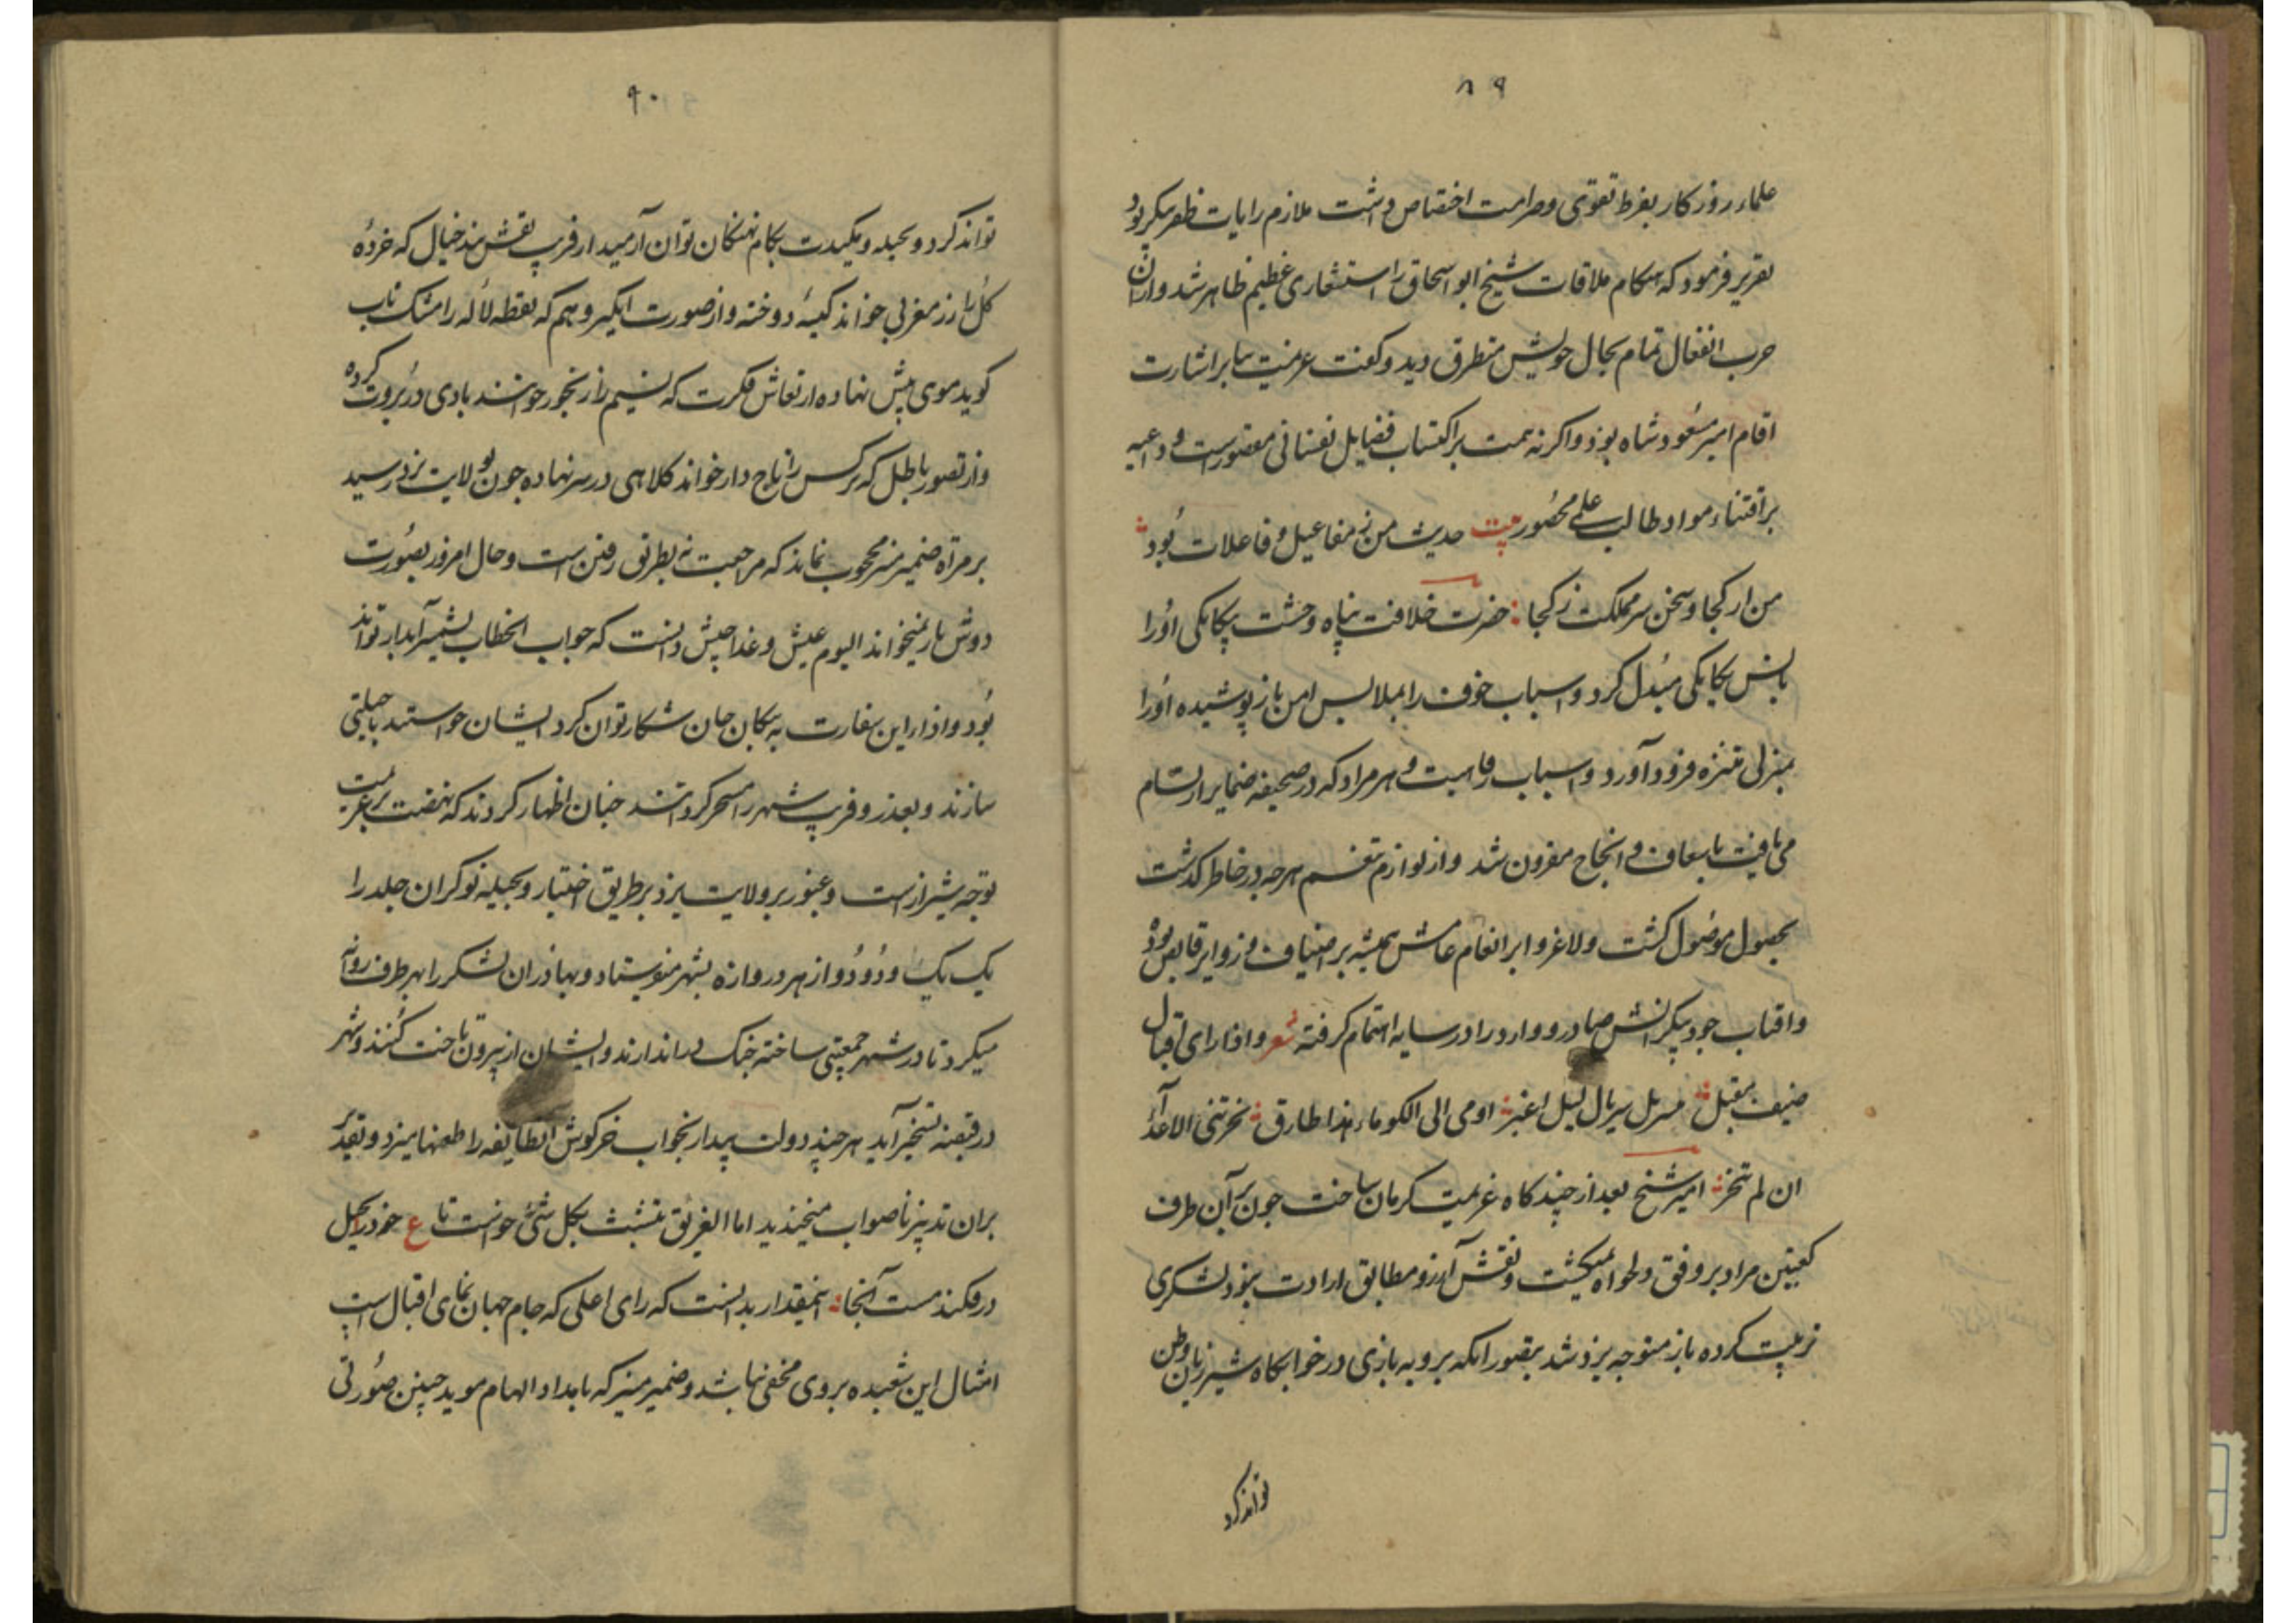 ۸۹
علماء روزکار بفرط تقوی و صرامت اختصاص داشت ملازم رایات ظفرپیکر بود
تقریر فرمود که هنکام ملاقات شیخ ابو اسحاق را استشعاری عظیم ظاهر شد و ازان
حرب انفعال تمام بحال خویش متطرق دید و کفت عزیمت ما بر اشارت
اقام امیر مسعود شاه بود و اکر نه همت بر اکتساب فضایل نفسانی مقصورست و داعیه
بر اقتناء مواد مطالب علمی محصور بیت حدیث من ز مفاعیل و فاعلات بود
من از کجا و سخن سر مملکت ز کجا حضرت خلافت پناه وحشت بیکانکی او را
بانس یکانکی مبدل کرد و اسباب خوف را بملابس امن باز پوشیده او را
بمنزلی متنزه فرود آورد و اسباب رفاهیت و هر مراد که در صحیفه ضمایر ارتسام
می یافت باسعاف و انجاح مقرون شد و از لوازم تنعم هرچه در خاطر کذشت
بحصول موصول کشت و لاغرو ابر انعام عامش همیشه بر اضیاف و زوایر فایض بود
و افتاب جود بیکرانش صادر و وارد را در سایه اهتمام کرفته شعر و اذا رای اقبال
ضیف مقبل متسربل سربال لیل اغبر اومی الی الکوماء هذا طارق نحرتنی الاعداء
ان لم تنحر امیر شیخ بعد از چند کاه عزیمت کرمان ساخت چون بر آن طرف
کعبتین مراد بر وفق دلخواه نمیکشت و نقش آرزو مطابق ارادت نبود لشکری
ترتیب کرده باز متوجه یزد شد بتصور انکه بروبه بازی در خوابکاه شیر زیان وطن
تواند کرد
۹۰
تواند کرد و بحیله و مکیدت بکام نهنکان توان آرمید از فریب نقش بند خیال که خردهٔ
کل را زر مغربی خواند کیسهٔ دوخته و از صورت انکیز وهم که نقطه لاله را مشک ناب
کوید موی پیش نهاده از نقاش فکرت که نسیم را رنجور خوانند بادی در بروت کرده
و از تصور باطل که نرکس را تاج دار خواند کلاهی در سر نهاده چون بولایت یزد رسید
بر مرآة ضمیر منیر محجوب نماند که مراجعت نه بطریق رفتن است و حال امروز بصورت
دوش باز نمیخواند الیوم عیش و غدا جیش دانست که جواب الخطاب بشمشیر آبدار تواند
بود و اذار این سفارت به پیکان جان شکار توان کرد ایشان خواستند تا حیلتی
سازند و بغدر و فریب شهر را مسخر کردانند چنان اظهار کردند که نهضت بر عزیمت
توجه شیرازست و عبور بر ولایت یزد بر طریق اختیار و بحیله نوکران جلد را
یک یک و دو دو از هر دروازه بشهر میفرستاد و بهادران لشکر را بهر طرف روانه
میکرد تا در شهر جمعیتی ساخته جنک دراندازند و ایشان از بیرون تاختن کنند و شهر
در قبضه تسخیر آید هرچند دولت بیدار بخواب خرکوش آن طایفه را طعنها میزد و تقدیر
بران تدبیر ناصواب میخندید اما الغریق یتشبث بکل شئ خواست تا ع خود را بحیل
درفکند مست آنجا اینمقدار بدانست که رای اعلی که جام جهان نمای اقبال است
امثال این شعبده بر وی مخفی نباشد و ضمیر منیر که بامداد الهام موید چنین صورتی